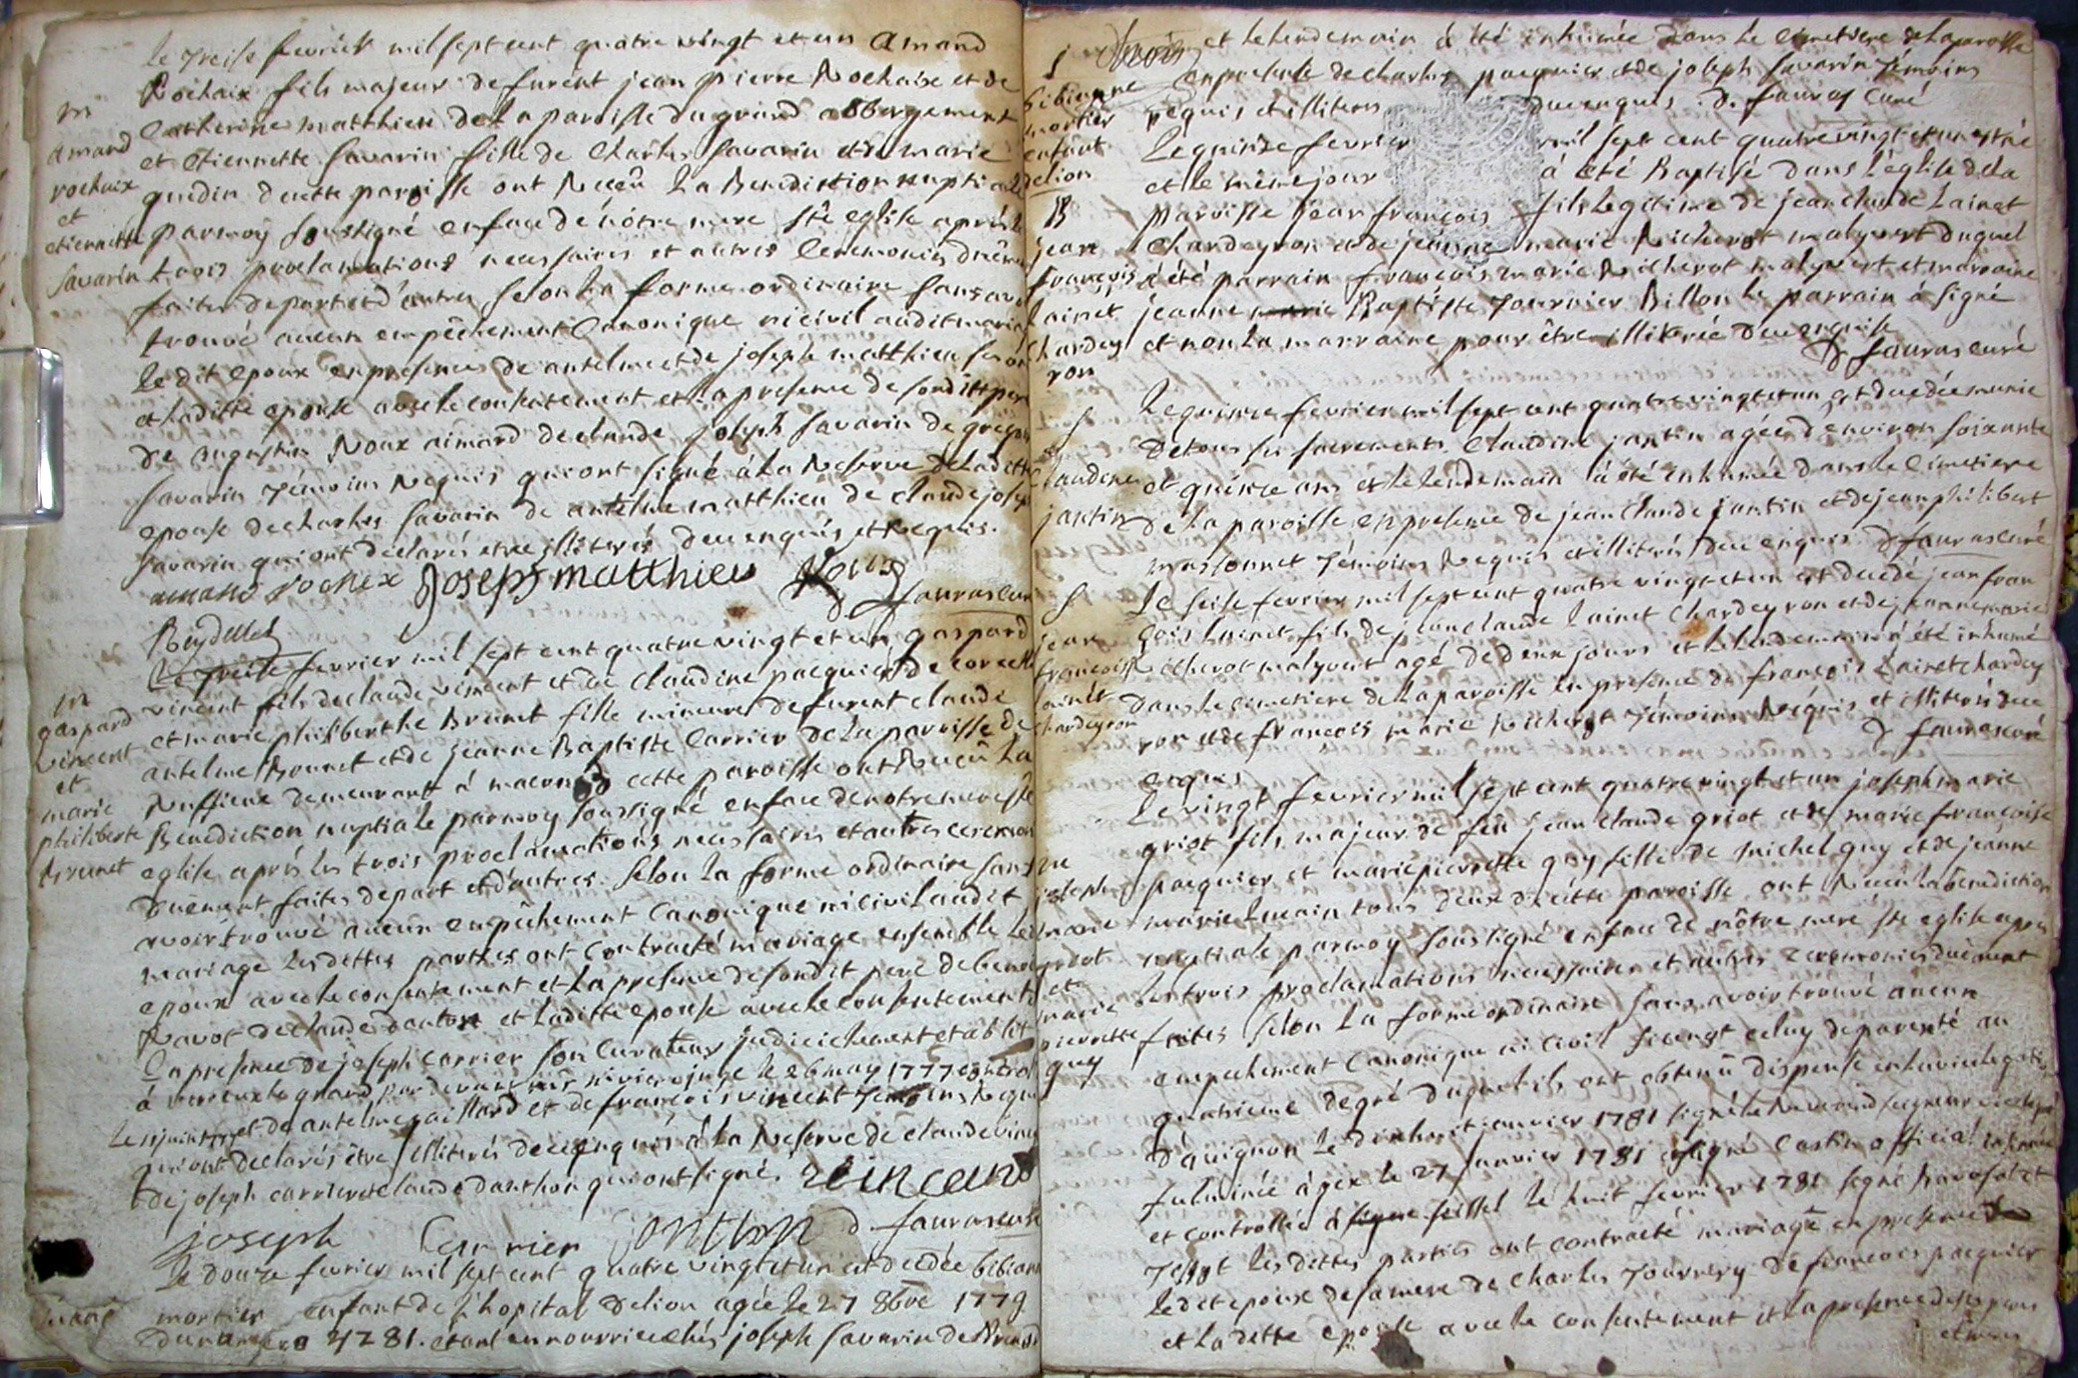 le treise fevrier mil sept cent quatre vingt et un amand
Rochaix fils majeur de furent jean pierre Rochaise et de
Catherine matthieu de la paroisse du grand abbergement
et etiennette Savarin fille de Charles Savarin et de marie
de cette paroisse ont Receu la Benediction nuptiale
parmoy soussigné enface de nôtre mere Ste eglise aprés les
trois proclamations necessaires et autres Ceremonies
faites de part et d'autres selon la forme ordinaire sans avoir
trouvé aucun empêchement Canonique ni civil audit mariage
le dit epoux en presence de antelme et de joseph matthieu
et laditte epouse avec le consentement et la presence de son dit pere
de augustin Noux aimard de claude joseph Savarin de
Savarin témoins Requis qui ont signé à la Reserve de laditte
epouse de charles Savarin de antelme matthieu de claude joseph
Savarin qui ont declarés etre illiterés de ce enquis et Requis.
amand rochex Joseph matthieu
D fauras curé
Beydellet
m
amand
rochaix
et
etiennette
Savarin
Le treise fevrier mil sept cent quatre vingt et un gaspard
vincent fils de claude vincent et de Claudine pacquier de
et marie philiberthe Brunet fille mineure de furent claude
antelme Brunet et de jeanne Baptiste Carrier de la paroisse de
Ruffieux demeurant à cette paroisse ont Receu la
Benediction nuptiale parmoy soussigné enface de notre mere ste
eglise aprés les trois proclamations necessaires et autres ceremonies
duement faites depart et d'autres selon la forme ordinaire sans
avoir trouvé aucun empêchement Canonique ni civil audit
mariage les dittes parties ont contracté mariage ensemble le dit
epoux avec le consentement et la presence de son dit pere de
Ravot de claude danton et laditte epouse avec le consentement
la presence de joseph carrier son Curateur judiciellement etablit
à le grand par devant juge le 26 may 1777
et de antelme gaillard et de francois vincent temoins Requis
qui ont declarés être illiterés de ce enquis à la Reserve de claude vincent
de joseph carrier et claude danthon qui ont signés vincent
joseph Carrier D fauras curé
m
gaspard
vincent
et
marie
philiberte
Brunet
Le douze fevrier mil sept cent quatre vingt et un est decedée bibianne
mortier enfant de l'hopital de lion agée le 27 8bre 1779
du numero 4281. etant en nourrice chés joseph Savarin de
S
bibianne
mortier
enfant
de lion
et le lendemain à été inhumée dans le cimetiere de la paroisse
en presence de charles pacquier et de joseph savarin témoins
requis et illiterés de ce enquis. D. fauras Curé
B
jean
françois
lainet
chardey
ron
Le quinze fevrier mil sept cent quatre vingt et un est né
et le même jour à été Baptisé dans l'église de la
Paroisse jean françois fils legitime de jean claude Lainet
Chardeyron et de jeanne marie Richerot malyvert duquel
à été parrain françois marie Richerot malyvert et marraine
jeanne Baptiste Tournier Billon le parrain à signé
et non la marraine pour être illiterée de ce enquise
D fauras curé
S
claudine
jantin
Le quinze fevrier mil sept cent quatre vingt et un est decedée munie
de tous les sacrements Claudine jantin agée d'environ soixante
et quinze ans et le lendemain à été inhumée dans le Cimetiere
de la paroisse en presence de jean Claude jantin et de jean philibert
massonnet Témoins Requis et illiterés de ce enquis D fauras curé
S
jean
françois
lainet
chardeyron
Le seise fevrier mil sept cent quatre vingt et un est decedé jean fran
çois Lainet fils de jean claude Lainet Chardeyron et de jeanne marie
Richerot malyvert agé de deux jours et le lendemain à été inhumé
dans le cimetiere de la paroisse en presence de françois Lainet chardey
ron et de françois marie Richerot témoins Requis et illiterés de ce
enquis D fauras curé
m
joseph
marie
griot
et
marie
pierrette
guy
Le vingt fevrier mil sept cent quatre vingt et un joseph marie
griot fils majeur de feu jean claude griot et de marie françoise
pacquier et marie pierrette guy fille de michel guy et de jeanne
marie humain tous deux de cette paroisse ont Receu la benediction
nuptiale parmoy soussigné enface de nôtre mere ste eglise aprés
les trois proclamations necessaires et autres ceremonies duement
faites selon la forme ordinaire sans avoir trouvé aucun
empechement Canonique ni civil sinon celuy de parenté au
quatrieme degré duquel ils ont obtenû dispense en la vicelegation
d'avignon le dixhuit janvier 1781 signé le Reverend seigneur
fulminée à gex le 27 janvier 1781 signé Castin official
et controllée à seissel le huit fevrier 1781 signé
les dittes parties ont contracté mariage en presence
le dit epoux de sa mere de Charles Tournery de françois pacquier
et la ditte epouse avec le consentement et la presence de ses pere
et mere